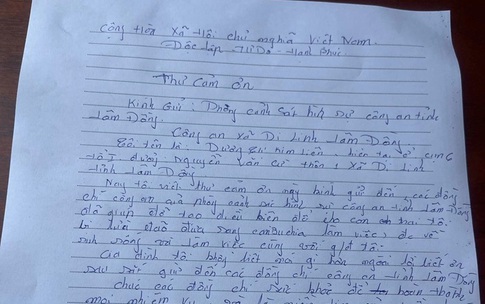 Cộng Hòa Xã Hội chủ nghĩa Việt Nam
Độc lập Tự Do - Hạnh Phúc
Thư Cảm ơn
Kính Gửi: Phòng cảnh sát hình sự công an tỉnh
Lâm Đồng.
Công an xã Di Linh Lâm Đồng
Tôi tên là: Dương Thị Kim Liên hiện tại ở
tổ 7 đường Nguyễn Văn Cừ thôn 1 xã Di Linh
tỉnh Lâm Đồng
Nay tôi viết thư cảm ơn này kính gửi đến các đồng
chí công an phòng cảnh sát hình sự công an tỉnh Lâm Đồng
đã giúp đỡ tạo điều kiện cho con trai tôi
bị lừa đảo đưa sang campuchia làm việc được về
sinh sống và làm việc cùng với gđ tôi
Gia đình tôi không biết nói gì hơn ngoài lời biết ơn
sâu sắc gửi đến các đồng chí công an tỉnh Lâm Đồng
chúc các đồng chí sức khỏe để hoàn thành
mọi nhiệm vụ